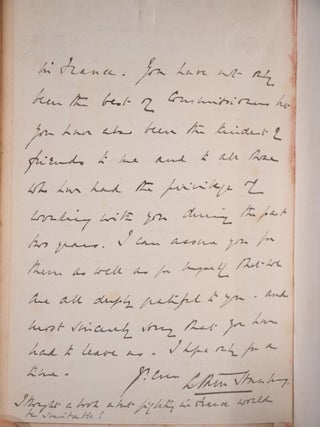 in France. You have not only
been the best of Commissioners but
you have also been the kindest of
friends to me and to all those
who have had the privilege of
working with you during the past
two years. I can assure you for
them as well as for myself that we
are all deeply grateful to you - and
most sincerely sorry that you have
had to leave us. I hope only for a
time.
Yrs ever
I thought a book about fighting in France would
be suitable!